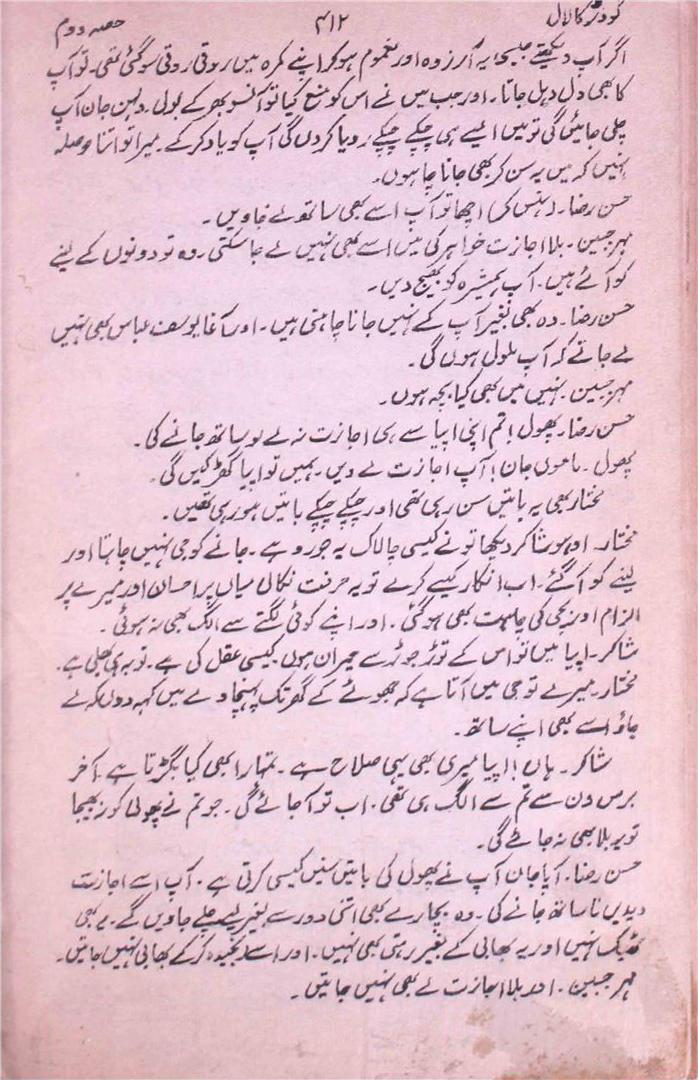 گودڑ کا لال ۴۱۲ حصہ دوم
اگر آپ دیکھتے جیسی یہ آزردہ اور مغموم ہوکر اپنے کمرہ میں روتی روتی سو گئی تھی۔ تو آپ
کا بھی دل دہل جاتا۔ اور جب میں نے اس کو منع کیا تو آنسو بھر کے بولی۔ دلہن جان آپ
چلی جائیں گی تو میں ایسے ہی چپکے چپکے رویا کروں گی آپ کو یاد کر کے۔ میرا تو اتنا حوصلہ
نہیں کہ میں یہ سن کر بھی جانا چاہوں۔
حسن رضا۔ (ہنس کر) اچھا تو آپ اسے بھی ساتھ لے جاویں۔
مہر جبین۔ بلا اجازت خواہر کی میں اسے بھی نہیں لے جا سکتی۔ وہ تو دونوں کے لینے
کو آئے ہیں۔ آپ ہمشیرہ کو بھیج دیں۔
حسن رضا۔ وہ بھی بغیر آپ کے نہیں جانا چاہتی ہیں۔ اور آغا یوسف عباس بھی نہیں
لے جاتے کہ آپ ملول ہوں گی۔
مہر جبین۔ نہیں میں بھی کیا بچہ ہوں۔
حسن رضا۔ پھول! تم اپنی اپیا سے ہی اجازت نہ لے لو ساتھ جانے کی۔
پھول۔ ماموں جان! آپ اجازت لے دیں۔ ہمیں تو اپیا گھڑکیں گی۔
مختار بھی یہ باتیں سن رہی تھی اور چپکے چپکے باتیں ہو رہی تھیں۔
مختار۔ اوہو شاکر دیکھا تو نے کیسی چالاک یہ جورو ہے۔ جانے کو جی نہیں چاہتا اور
لینے کو آ گئے۔ اب انکار کیسے کرے تو یہ حرفت نکالی میاں پر احسان اور میرے پر
الزام اور بچی کی چاہت بھی ہو گئی۔ اور اپنے کوئی لگتے سے الگ بھی نہ ہوئی۔
شاکر۔ اپیا میں تو اس کے توڑ جوڑ سے حیران ہوں کیسی عقل کی ہے۔ توبہ ہی بھلی ہے۔
مختار۔ میرے تو جی میں آتا ہے کہ جھوٹے کے گھر تک پہنچا دے میں کہہ دوں کہ لے
جاؤ اسے بھی اپنے ساتھ۔
شاکر۔ ہاں! اپیا میری بھی یہی صلاح ہے۔ تمہارا بھی کیا بگڑتا ہے آخر
برس دن سے تم سے الگ ہی تھی۔ اب تو آ جائے گی۔ جو تم نے پھول کو نہ بھیجا
تو یہ بلا بھی نہ جائے گی۔
حسن رضا۔ آپا جان آپ نے پھول کی باتیں سنیں کیسی کرتی ہے۔ آپ اسے اجازت
دیدیں نا ساتھ جانے کی۔ وہ بچارے بھی اتنی دور سے بغیر لیے چلے جاویں گے۔ یہ بھی
ٹھیک نہیں اور یہ بھابی کے بغیر رہتی بھی نہیں۔ اور اسے رنجیدہ کر کے بھابی نہیں جاتیں۔
مہر جبین۔ اور بلا اجازت لے بھی نہیں جاتیں۔